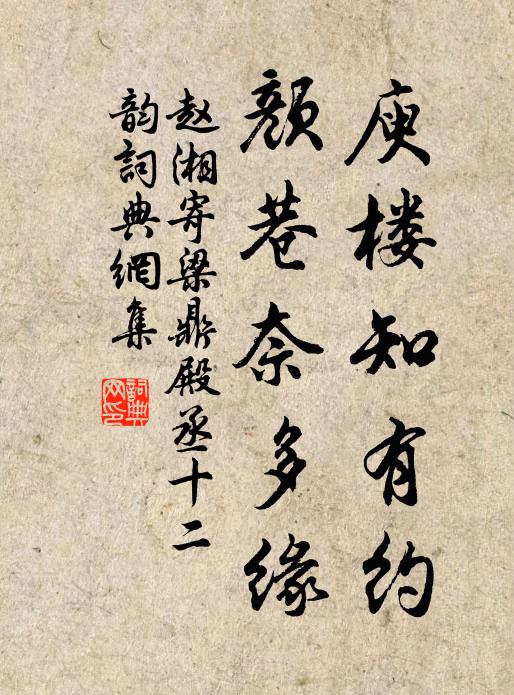 庾楼知有约
颜巷奈多缘
赵湘寄梁鼎殿丞十二
韵詞典網集
詞典
网印